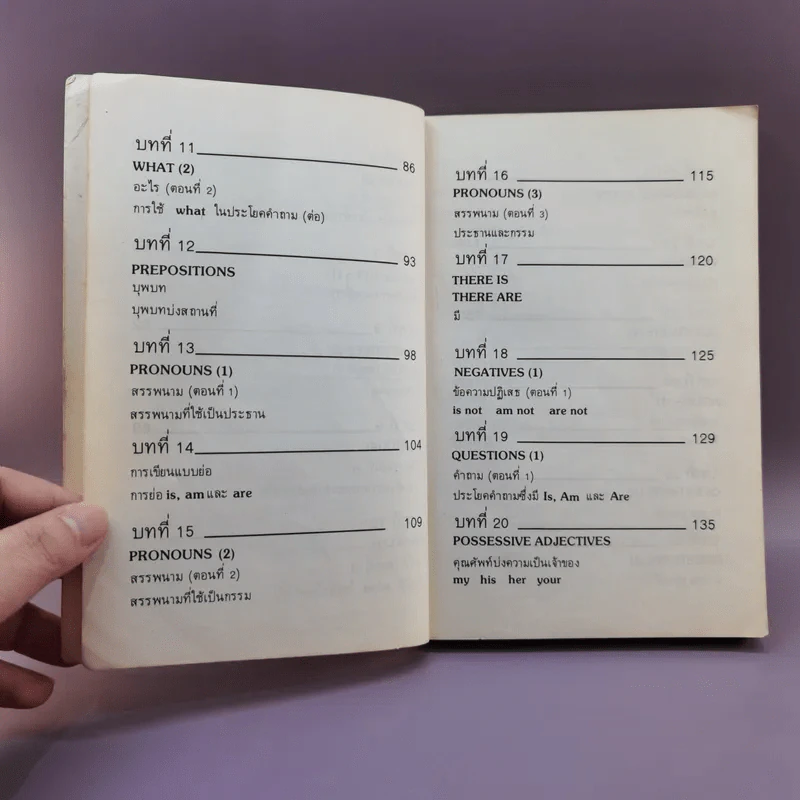 บทที่ 11 86
WHAT (2)
อะไร (ตอนที่ 2)
การใช้ what ในประโยคคำถาม (ต่อ)
บทที่ 12 93
PREPOSITIONS
บุพบท
บุพบทบ่งสถานที่
บทที่ 13 98
PRONOUNS (1)
สรรพนาม (ตอนที่ 1)
สรรพนามที่ใช้เป็นประธาน
บทที่ 14 104
การเขียนแบบย่อ
การย่อ is, am และ are
บทที่ 15 109
PRONOUNS (2)
สรรพนาม (ตอนที่ 2)
สรรพนามที่ใช้เป็นกรรม
บทที่ 16 115
PRONOUNS (3)
สรรพนาม (ตอนที่ 3)
ประธานและกรรม
บทที่ 17 120
THERE IS
THERE ARE
มี
บทที่ 18 125
NEGATIVES (1)
ข้อความปฏิเสธ (ตอนที่ 1)
is not am not are not
บทที่ 19 129
QUESTIONS (1)
คำถาม (ตอนที่ 1)
ประโยคคำถามซึ่งมี Is, Am และ Are
บทที่ 20 135
POSSESSIVE ADJECTIVES
คุณศัพท์บ่งความเป็นเจ้าของ
my his her your